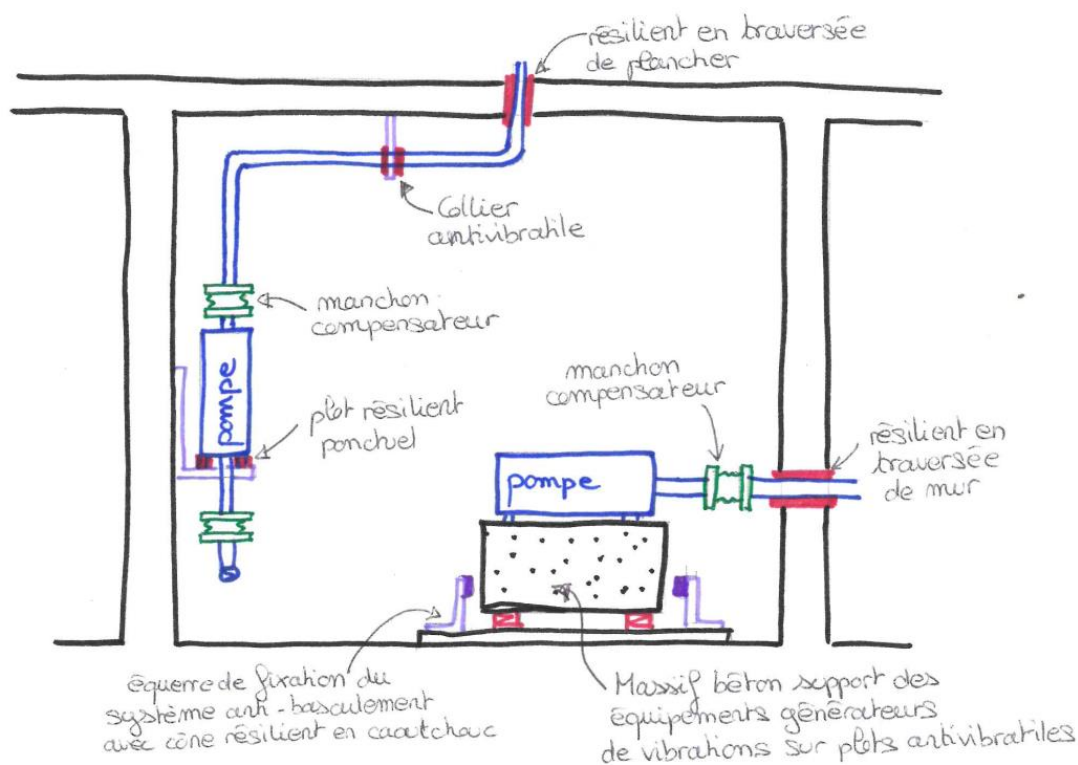 résilient en traversée
de plancher
Collier
antivibratile
manchon
compensateur
pompe
plot résilient
ponctuel
manchon
compensateur
résilient en
traversée
de mur
pompe
équerre de fixation du
système anti-basculement
avec cône résilient en caoutchouc
Massif béton support des
équipements générateurs
de vibrations sur plots antivibratiles